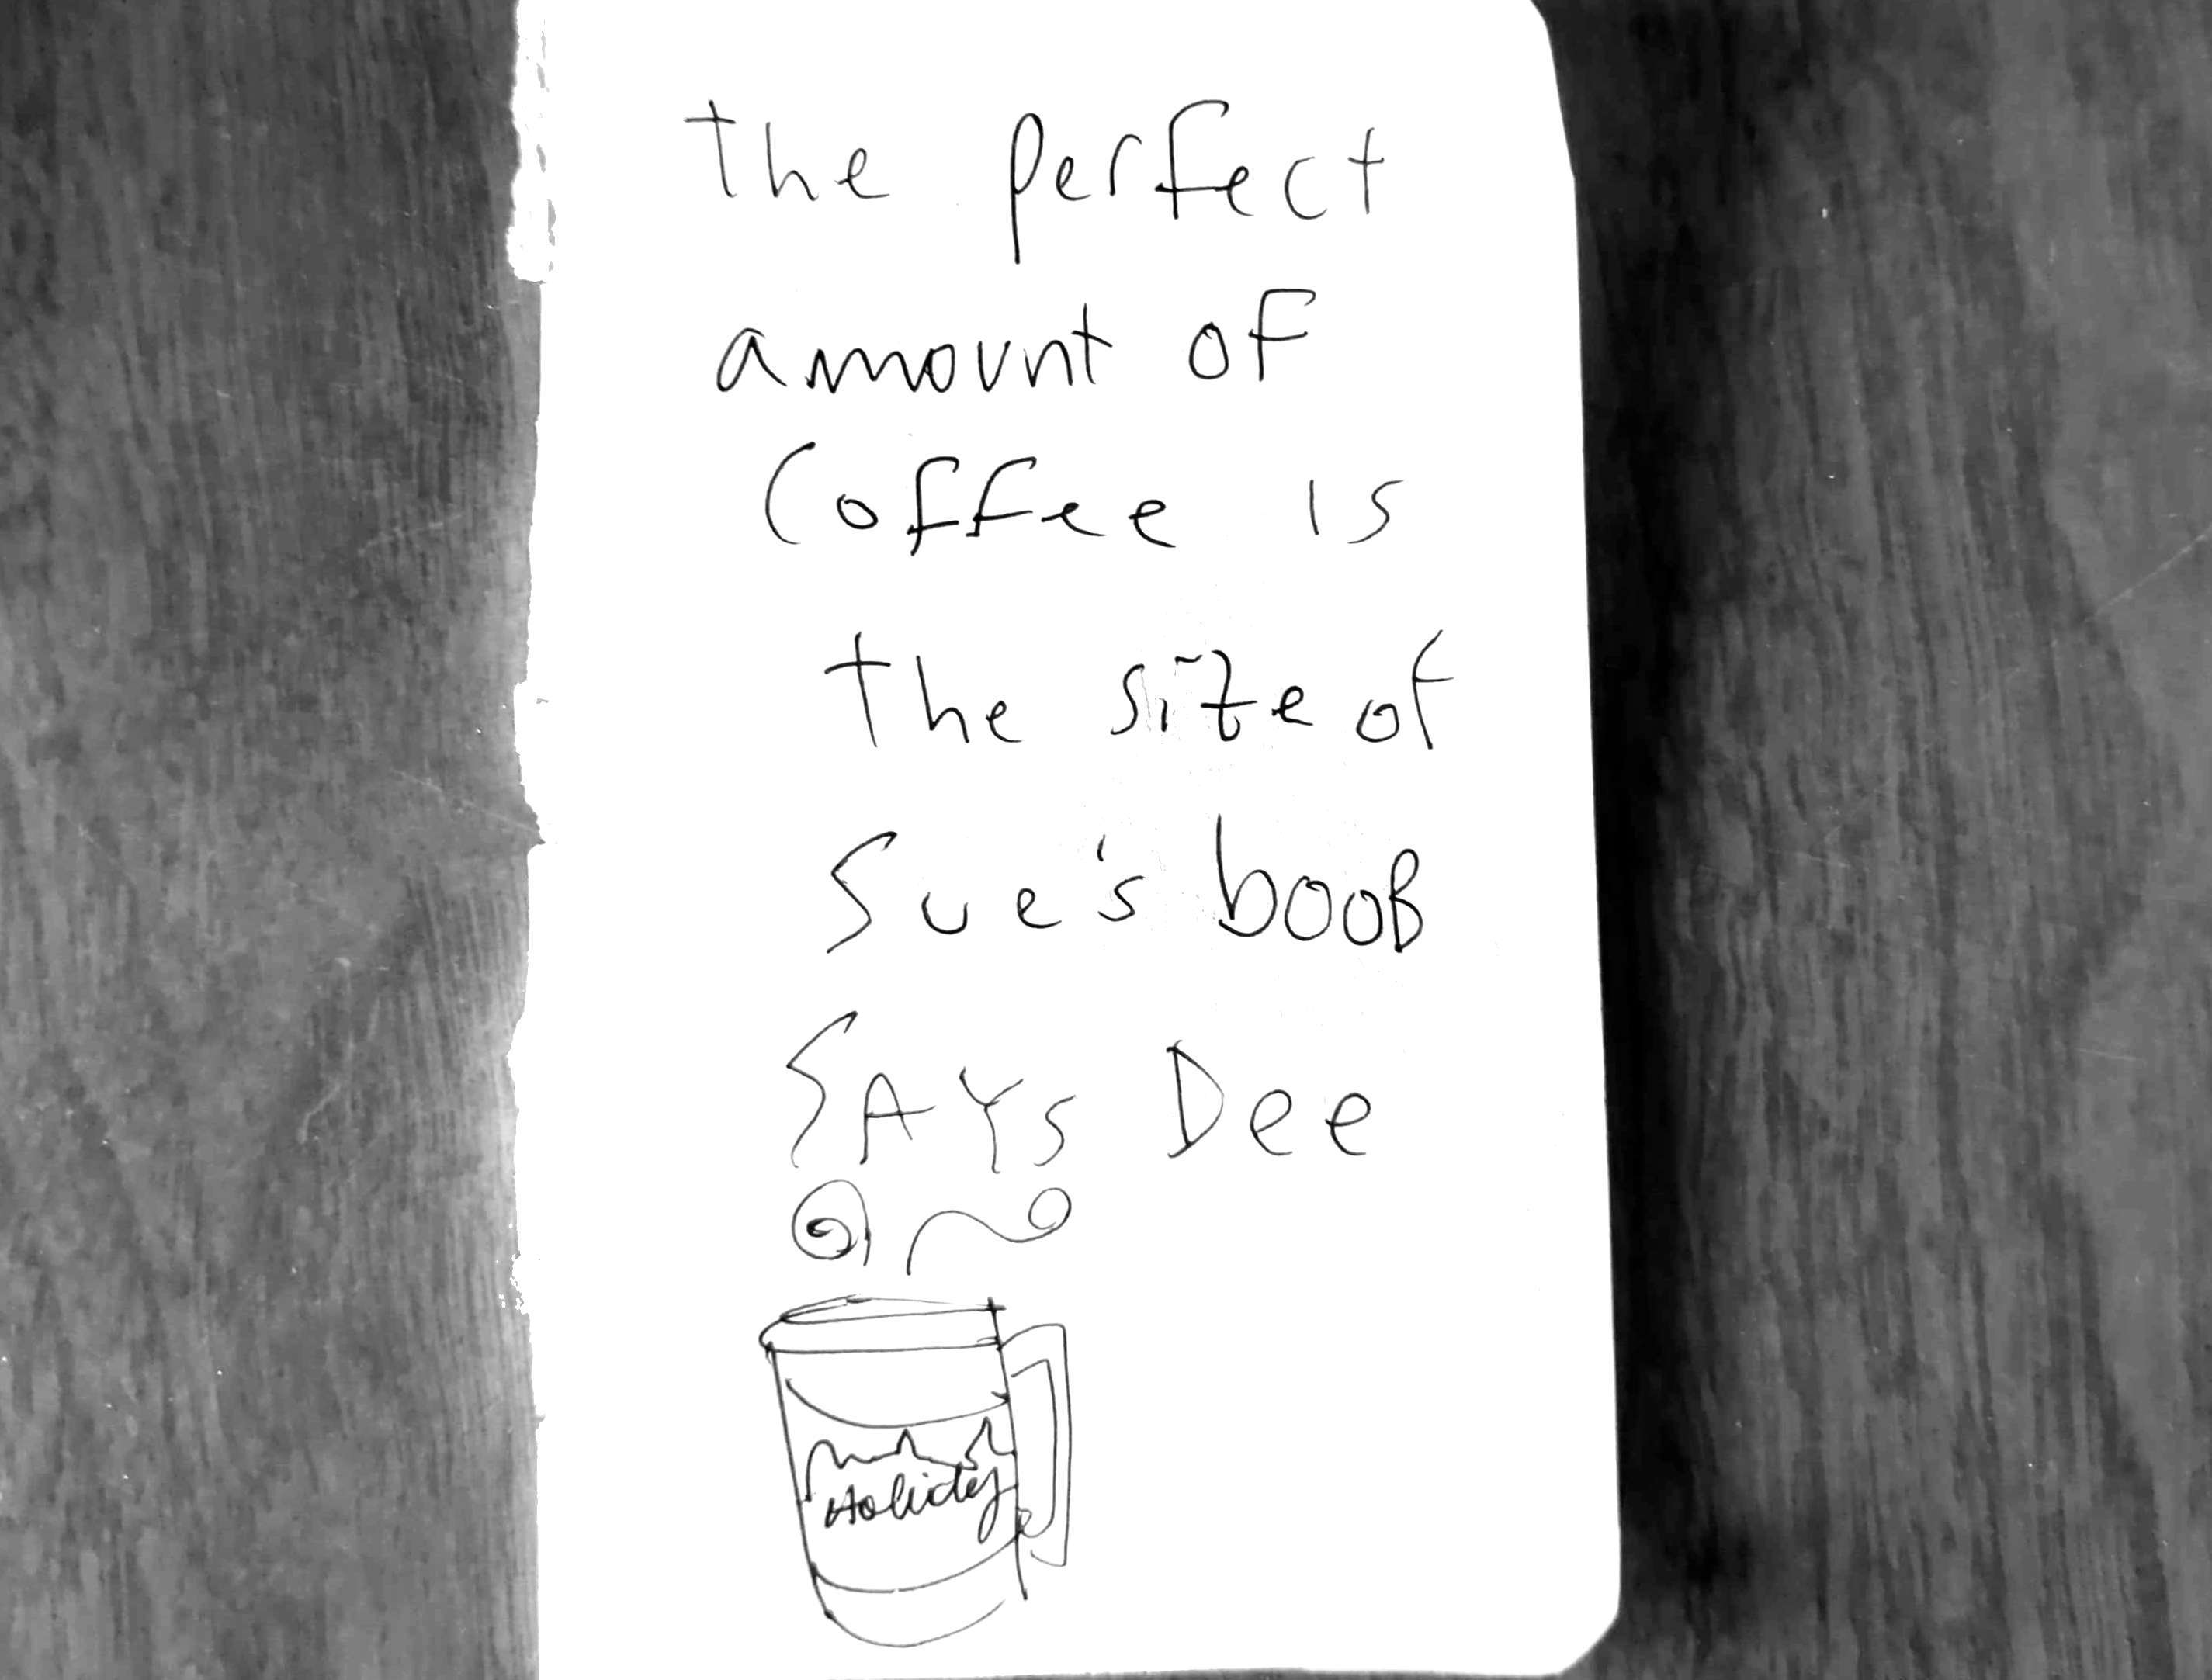 the perfect
amount of
Coffee is
the size of
Sue's booB
SAYs Dee
Holiday